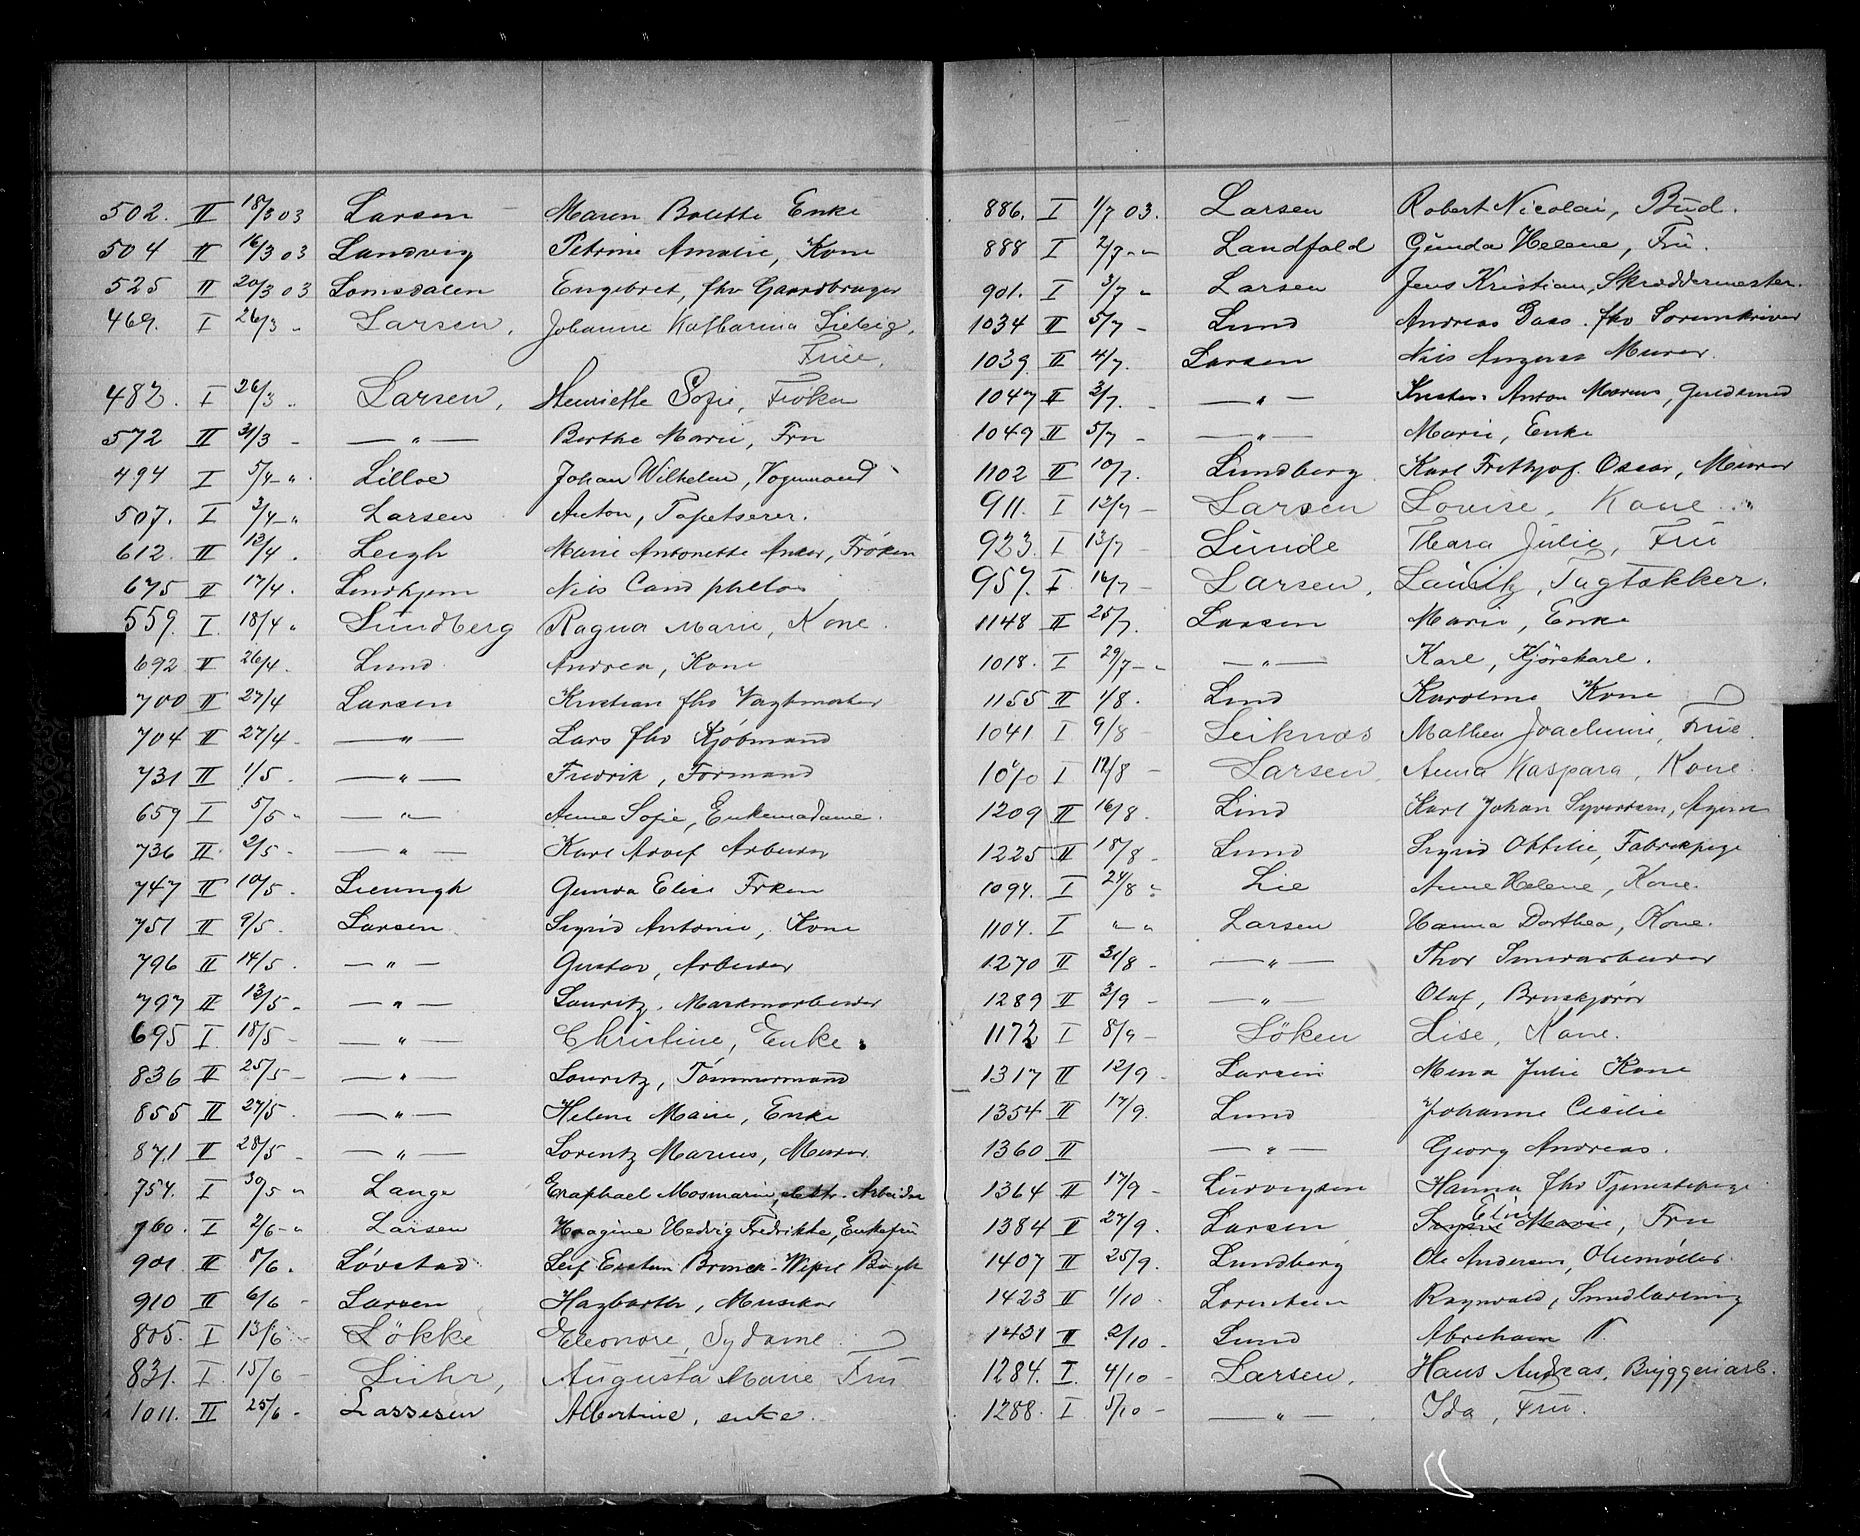 502. II 18/3 03 Larsen Maren Bolette Enke
504 II 16/3 03 Landvig Petrine Amalie, Kone
525 II 20/3 03 Lomsdalen Engebret, fhv Gaardbruger
469. I 26/3 " Larsen, Johanne Katharina Liebig,
Frue.
482. I 26/3 " Larsen, Henriette Sofie, Frøken
572 II 31/3 - — " — Berthe Marie, Fru
494 I 5/4 - " Lilloe Johan Wilhelm, Vognmand
507. I 3/4 - " Larsen Anton, Tapetserer.
612. II 13/4. Leigh Marie Antonette Anker, Frøken
675 II 17/4. Lindhjem Nils Cand philos
559. I. 18/4 " Lundberg Ragna Marie, Kone.
692 II 26/4. Lund Andrea, Kone
700 II 27/4 Larsen Kristian fhv Vagtmester
704 II 27/4 - — " — Lars fhv Kjøbmand
731 II 1/5 . — " — Fredrik, Formand
659 I 5/5 " — " — Anne Sofie, Enkemadame.
736 II 2/5 - — " — Karl Adolf Arbeider
747 II 10/5. Lieungh Gunda Elise Frken
751 II 9/5. Larsen Sigrid Antonie, Kone
796 II 14/5. — " — Gustav, Arbeider
797 II 13/5 - — " — Lauritz, Markarbeider
695 I. 18/5 - — " — Christine, Enke.
836 II 25/5 - — " — Lauritz, Tømmermand
855 II 27/5. — " — Helene Marie, Enke
871 II 28/5 - — " — Lorentz Marius, Murer.
754. I 30/5 " Lange Eraphael Mosmarin, elektr. Arbeider
760. I 2/6 - " Larsen Haagine Hedvig Fredrikke, Enkefru
901. II 5/6. Løvstad Leif Bronck
910 II 6/6 - Larsen Hagbarth, Musiker
805. I 13/6 - Løkke Eleonore, Sydame.
831. I 15/6 - Lühr, Augusta Marie Fru
1011. II 25/6 - Lassesen Albertine, enke.
886. I 1/7 03. Larsen Robert Nicolai, Bud.
888 I 2/7 - " Landfald Gunda Helene, Fru.
901. I 3/7 " Larsen Jens Kristian, Skræddermester.
1034 II 5/7 - Lund Andreas Dass. fhv Sorenskriver
1039. II 4/7. Larsen Nils Murer.
1047 II 3/7. - — " — Anton Marius, Guldsmed
1049 II 5/7 - — " — Marie, Enke
1102 II 10/7. Lundberg Karl Frithjof Oscar, Murer
911. I 12/7 - Larsen Louise, Kone. "
923. I 13/7 - Lunde Thara Julie, Fru
957. I 16/7 - Larsen, Lauritz, Tagtækker.
1148 II 25/7. Larsen Marie, Enke
1018. I 29/7 - " — " — Karl, Kjørekarl.
1155 II 1/8. Lind Karoline Kone
1041 I 9/8 - Leiknæs Mathea Joachimi, Frue.
1070 I 12/8 - Larsen, Anna Kaspara, Kone.
1209 II 16/8. Lind Karl Johan Syvertsen, Agent
1225 II 18/8 - Lund Sigrid Ottilie, Fabrikpige
1094. I 24/8 " Lie Anne Helene, Kone.
1104. I " " Larsen Hanna Dorthea, Kone.
1270 II 31/8 - — " — Thor Smedarbeider
1289 II 3/9 - — " — Olaf, Bruskjører
1172 I 8/9 - Løken Lise, Kone.
1317 II 12/9 - Larsen Mina Julie Kone
1354 II 17/9. Lund Johanne Cicilie
1360 II — " — Georg Andreas.
1364 II 17/9 - Ludvigsen Hanna fhv Tjenestepige
1384 II 27/9. Larsen Elise Marie, Fru
1407 II 25/9. Lundberg Ole Andersen, Oliemøller
1423 II 1/10 - Lorentsen Ragnvald, Smedlærling
1431 II 2/10 - Lund Abraham N.
1284. I 4/10 - Larsen, Hans Andreas, Bryggeriarb.
1288. I 5/10 - — " — . Ida, Fru.